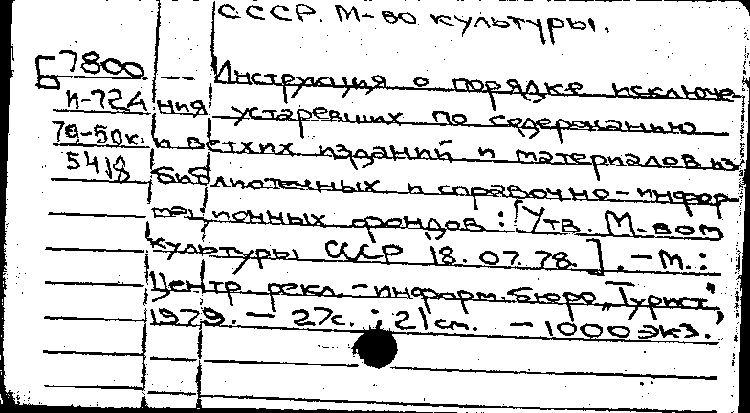 СССР. М-во культуры.
7800 Инструкция о порядке исключе-
И-72А ния устаревших по содержанию
79-50к. и ветхих изданий и материалов из
5418 библиотечных и справочно-инфор-
мационных фондов: [Утв. М-вом
культуры СССР 18.07.78.]. - М.:
Центр. рекл.-информ. бюро „Турист",
1979. - 27с. ; 21 см. - 1000 экз.